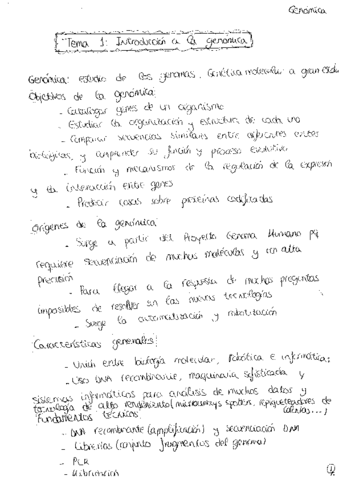 Genómica
Tema 1: Introducción a la genómica
Genómica: estudio de los genomas. Genética molecular a gran escala
Objetivos de la genómica:
- Catalogar genes de un organismo
- Estudiar la organización y estructura de cada uno
- Comparar secuencias similares entre diferentes entes
biológicos, y comprender su función y proceso evolutivo.
- Función y mecanismos de la regulación de la expresión
y la interacción entre genes
- Predecir cosas sobre proteínas codificadas
Orígenes de la genómica:
- Surge a partir del Proyecto Genoma Humano pq
requiere secuenciación de muchas moléculas y con alta
precisión
- Para llegar a la respuesta de muchas preguntas
imposibles de resolver sin las nuevas tecnologías
- Surge la automatización y robotización
Características generales:
- Unión entre biología molecular, robótica e informática:
- Uso DNA recombinante, maquinaria sofisticada y
sistemas informáticos para análisis de muchos datos y
tecnología de alto rendimiento (microarrays
Fundamentos técnicos:
- DNA recombinante (amplificación) y secuenciación DNA
- Librerías (conjunto fragmentos del genoma)
- PCR
- Hibridación
1